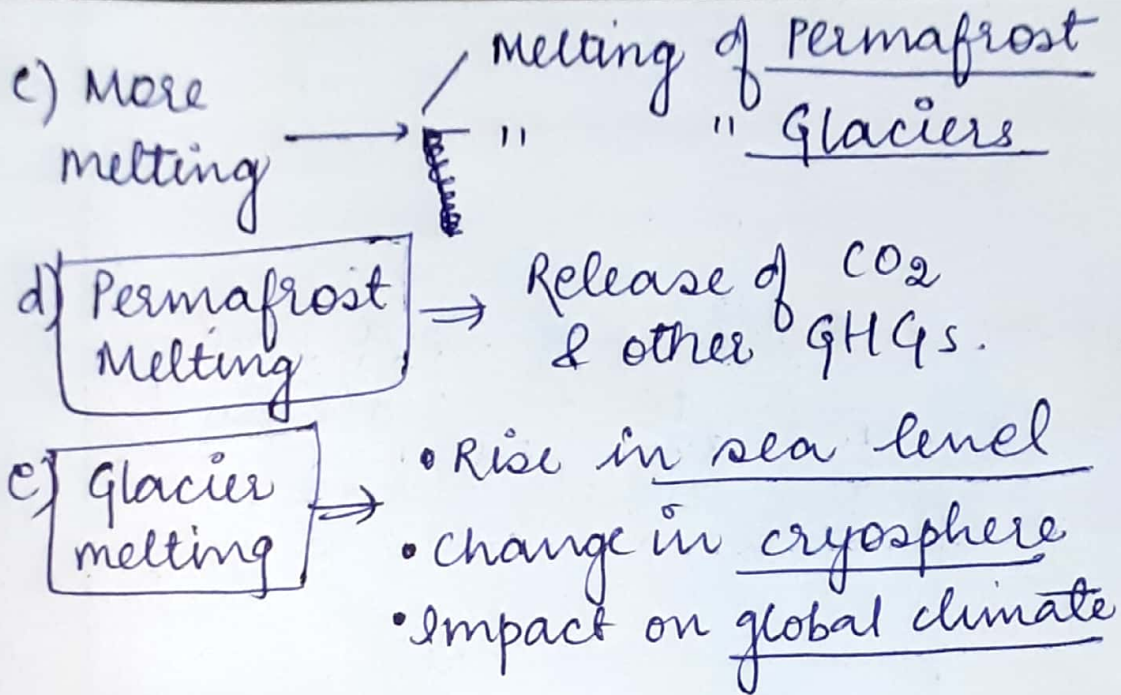 c) More melting → Melting of Permafrost
" " Glaciers
d) Permafrost Melting ⇒ Release of CO2
& other GHGs.
e) Glacier melting ⇒ • Rise in sea level
• Change in cryosphere
• Impact on global climate